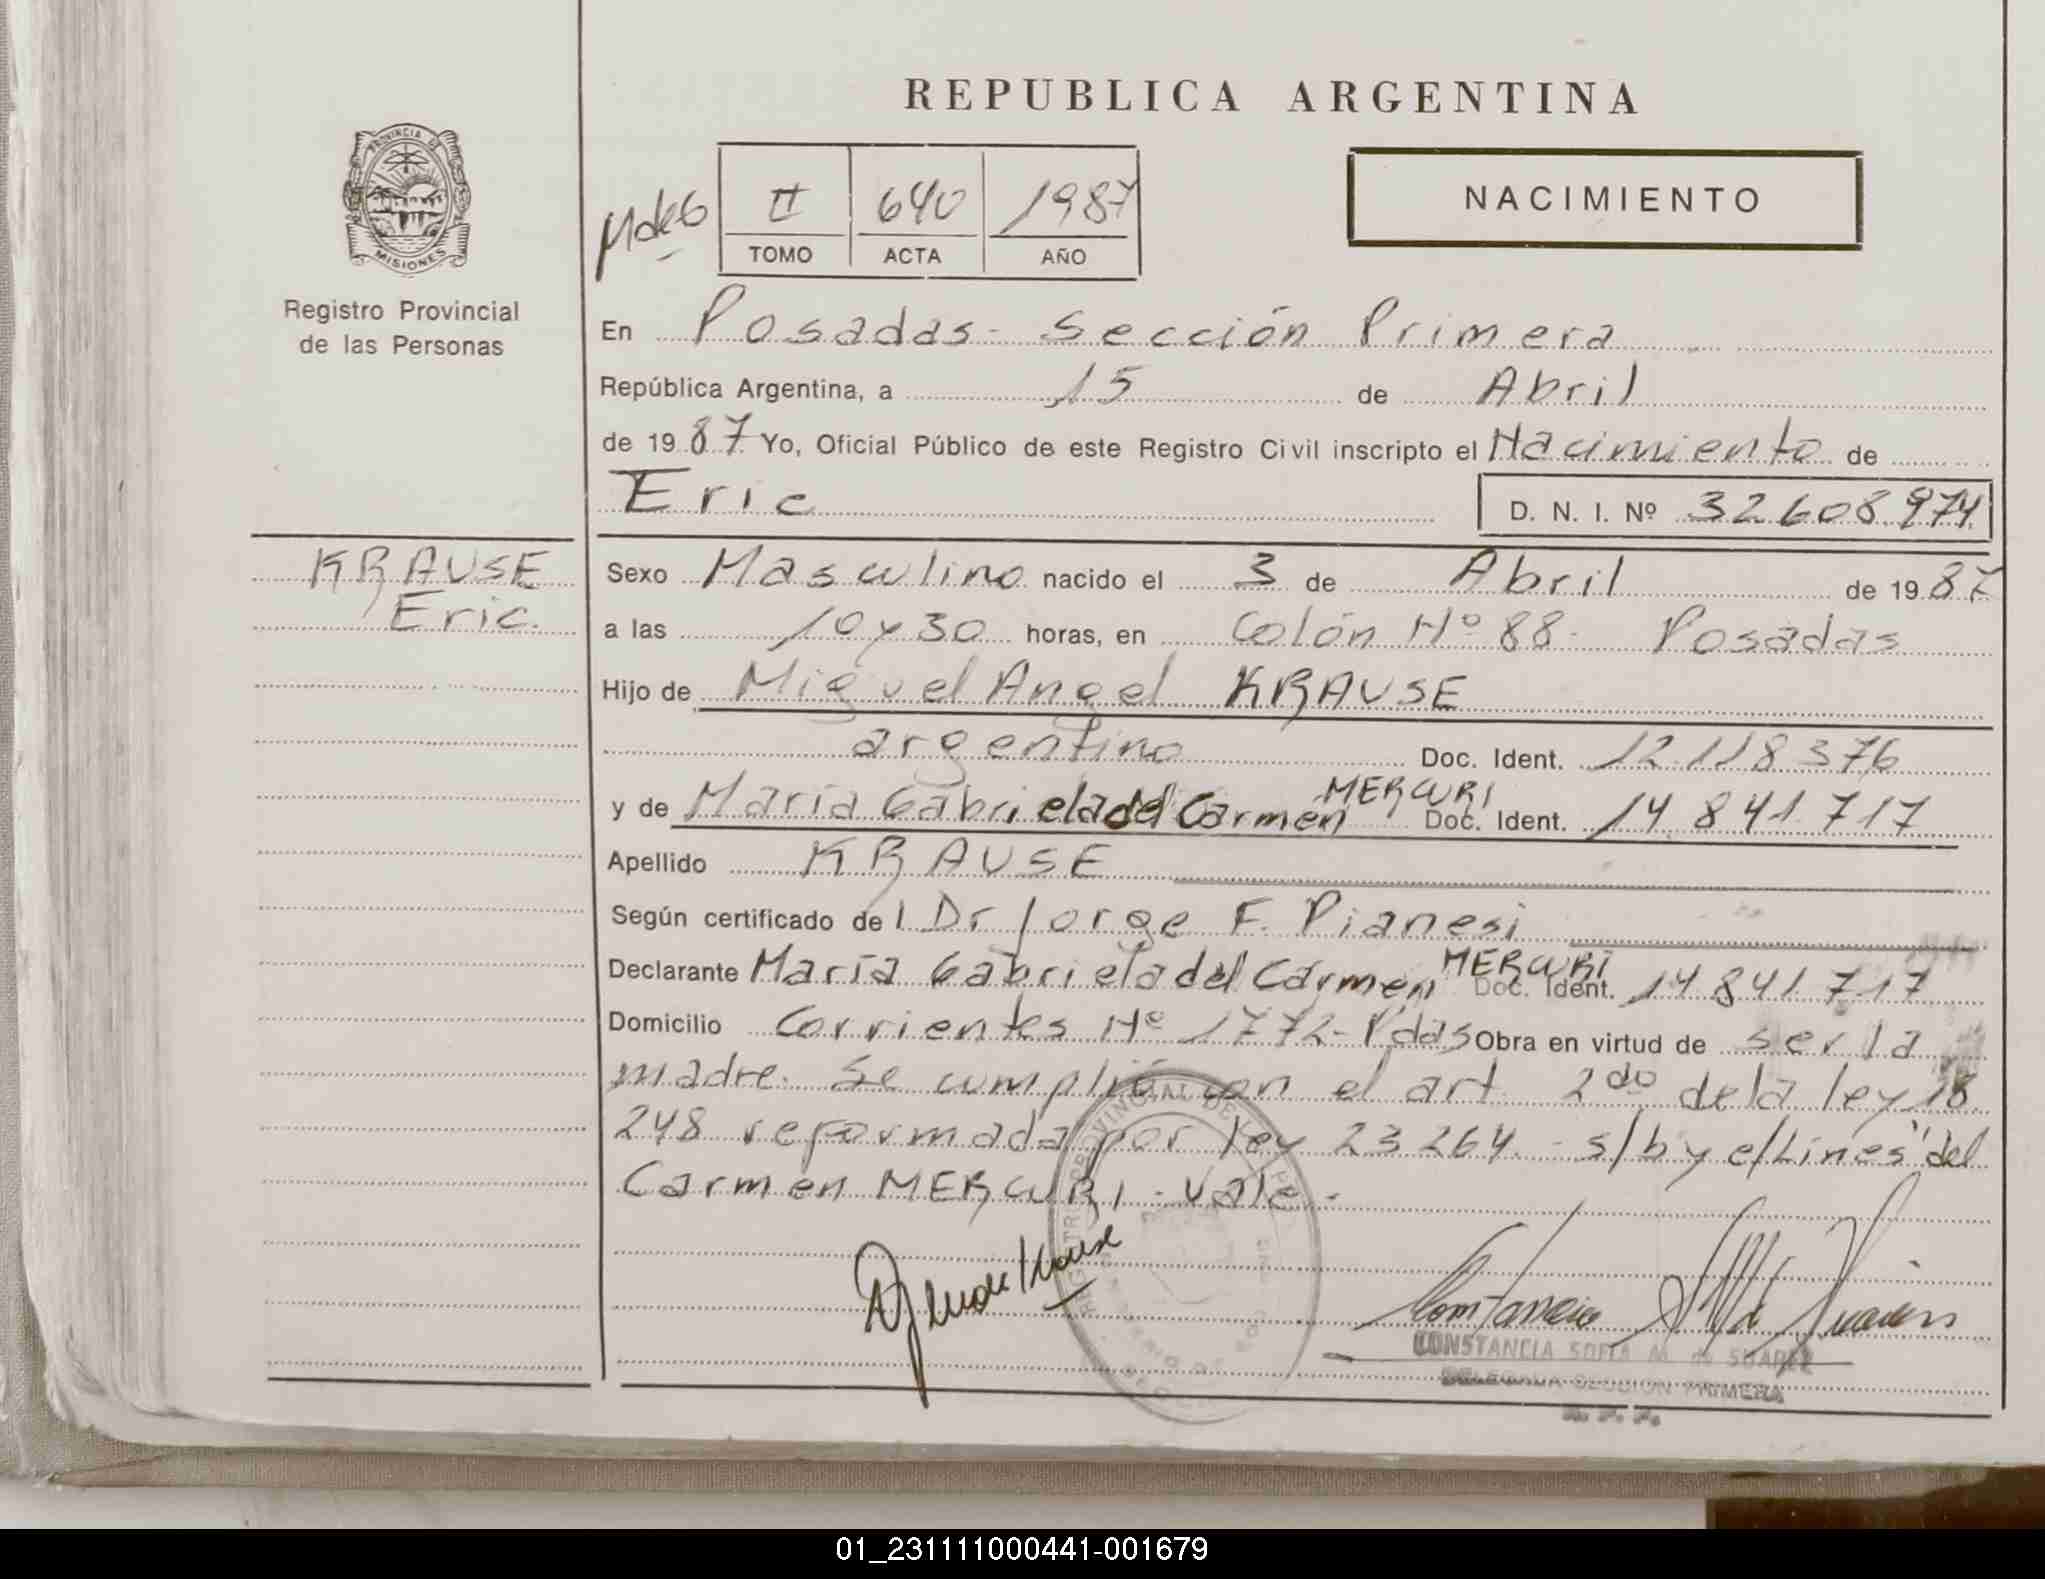 REPUBLICA ARGENTINA
PROVINCIA DE
MISIONES
Registro Provincial
de las Personas
II 640 1987
TOMO ACTA AÑO
NACIMIENTO
En Posadas - Sección Primera
República Argentina, a 15 de Abril
de 1987 Yo, Oficial Público de este Registro Civil inscripto el Nacimiento de
Eric D. N. I. Nº 32608974
KRAUSE
Eric.
Sexo Masculino nacido el 3 de Abril de 1987
a las 10 y 30 horas, en Colón Nº 88- Posadas
Hijo de Miguel Angel KRAUSE
argentino Doc. Ident. 12.118376
y de María Gabriela del Carmen MERCURI Doc. Ident. 14.841.717
Apellido KRAUSE
Según certificado del Dr Jorge F. Pianesi
Declarante María Gabriela del Carmen MERCURI Doc. Ident. 14841717
Domicilio Corrientes Nº 1772-Pdas Obra en virtud de ser la
madre. Se cumplió con el art. 2do de la ley 18
248 reformada por ley 23264.- s/b y e/Lines "del
Carmen MERCURI - Vale.-
CONSTANCIA SOFIA M. de SUAREZ
DELEGADA SECCION PRIMERA
R. P. P.
01_231111000441-001679